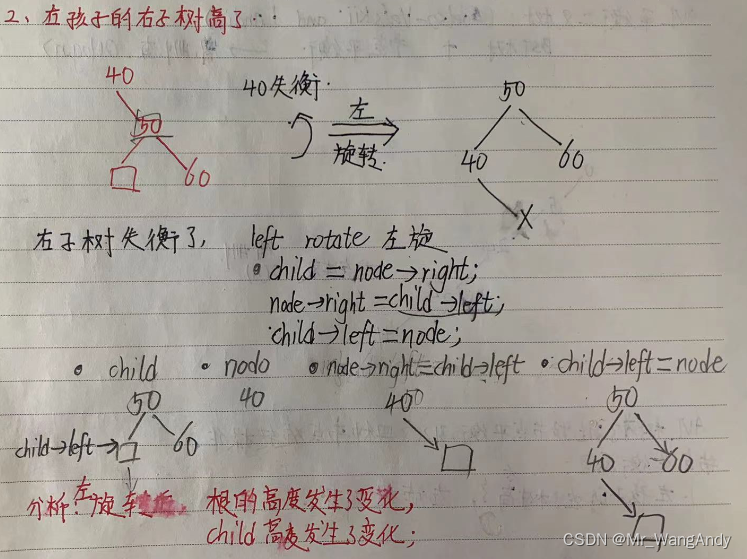 2、右孩子的右子树高了
40
40失衡.
50
50
左
旋转.
60
40
60
X
右子树失衡了,
left rotate 左旋
• child = node→right;
node→right = child→left;
child→left = node;
• child • nodo • node→right = child→left • child→left = node
50
40
40
50
child→left→
60
40
60
分析:左旋转后, 根的高度发生了变化,
child 高度发生了变化;
CSDN @Mr_WangAndy